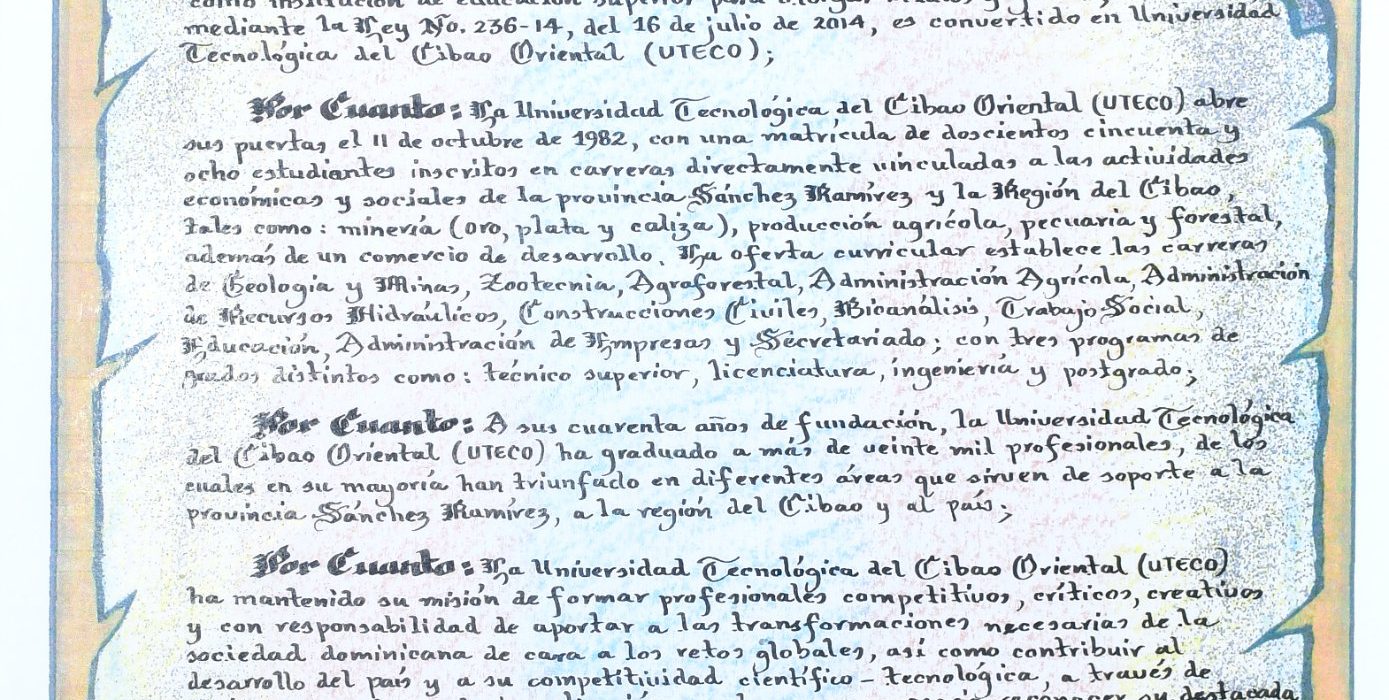 como institución de educación superior para otorgar
mediante la Ley No. 236-14, del 16 de julio de 2014, es convertido en Universidad
Tecnológica del Cibao Oriental (UTECO);
Por Cuanto: La Universidad Tecnológica del Cibao Oriental (UTECO) abre
sus puertas el 11 de octubre de 1982, con una matrícula de doscientos cincuenta y
ocho estudiantes inscritos en carreras directamente vinculadas a las actividades
económicas y sociales de la provincia Sánchez Ramírez y la Región del Cibao,
tales como: minería (oro, plata y caliza), producción agrícola, pecuaria y forestal,
además de un comercio de desarrollo. Su oferta curricular establece las carreras
de Geología y Minas, Zootecnia, Agroforestal, Administración Agrícola, Administración
de Recursos Hidráulicos, Construcciones Civiles, Bioanálisis, Trabajo Social,
Educación, Administración de Empresas y Secretariado; con tres programas de
grados distintos como: técnico superior, licenciatura, ingeniería y postgrado;
Por Cuanto: A sus cuarenta años de fundación, la Universidad Tecnológica
del Cibao Oriental (UTECO) ha graduado a más de veinte mil profesionales, de los
cuales en su mayoría han triunfado en diferentes áreas que sirven de soporte a la
provincia Sánchez Ramírez, a la región del Cibao y al país;
Por Cuanto: La Universidad Tecnológica del Cibao Oriental (UTECO)
ha mantenido su misión de formar profesionales competitivos, críticos, creativos
y con responsabilidad de aportar a las transformaciones necesarias de la
sociedad dominicana de cara a los retos globales, así como contribuir al
desarrollo del país y a su competitividad científico-tecnológica, a través de
reconocer su destacada